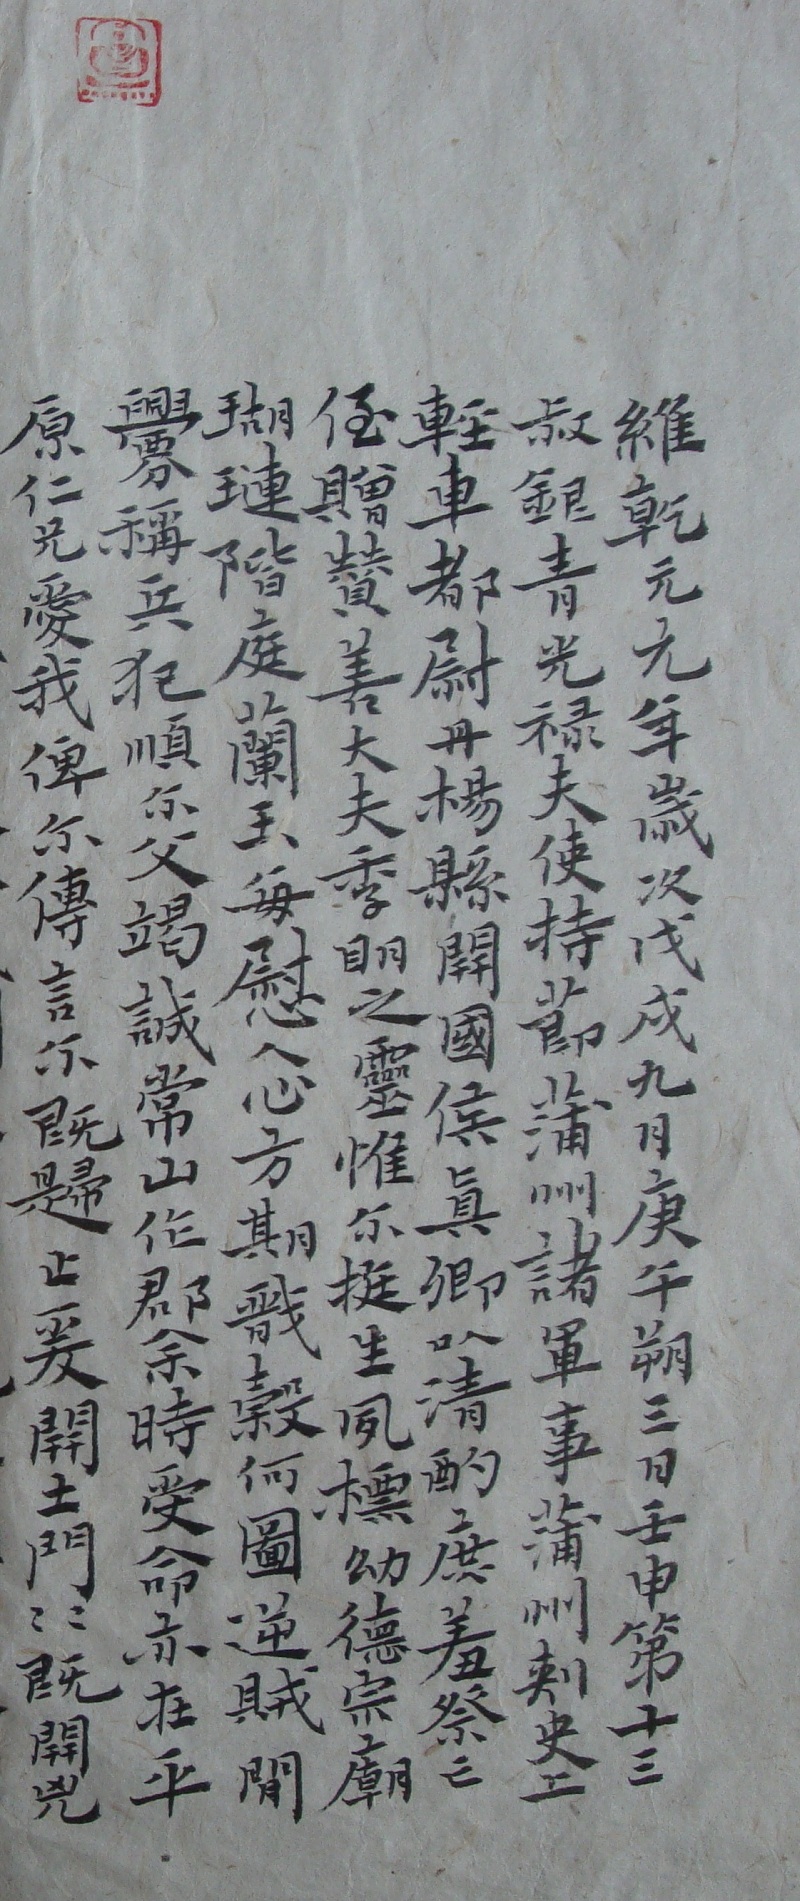 維乾元元年歲次戊戌九月庚午朔三日壬申第十三
叔銀青光禄夫使持節蒲州諸軍事蒲州刺史上
輕車都尉丹楊縣開國侯真卿以清酌庶羞祭亡
侄贈贊善大夫季明之靈惟尔挺生夙標幼德宗廟
瑚璉階庭蘭玉每慰人心方期戩穀何圖逆賊間
釁稱兵犯順尔父竭誠常山作郡余時受命亦在平
原仁兄愛我俾尔傳言尔既歸止爰開土門〻既開兇